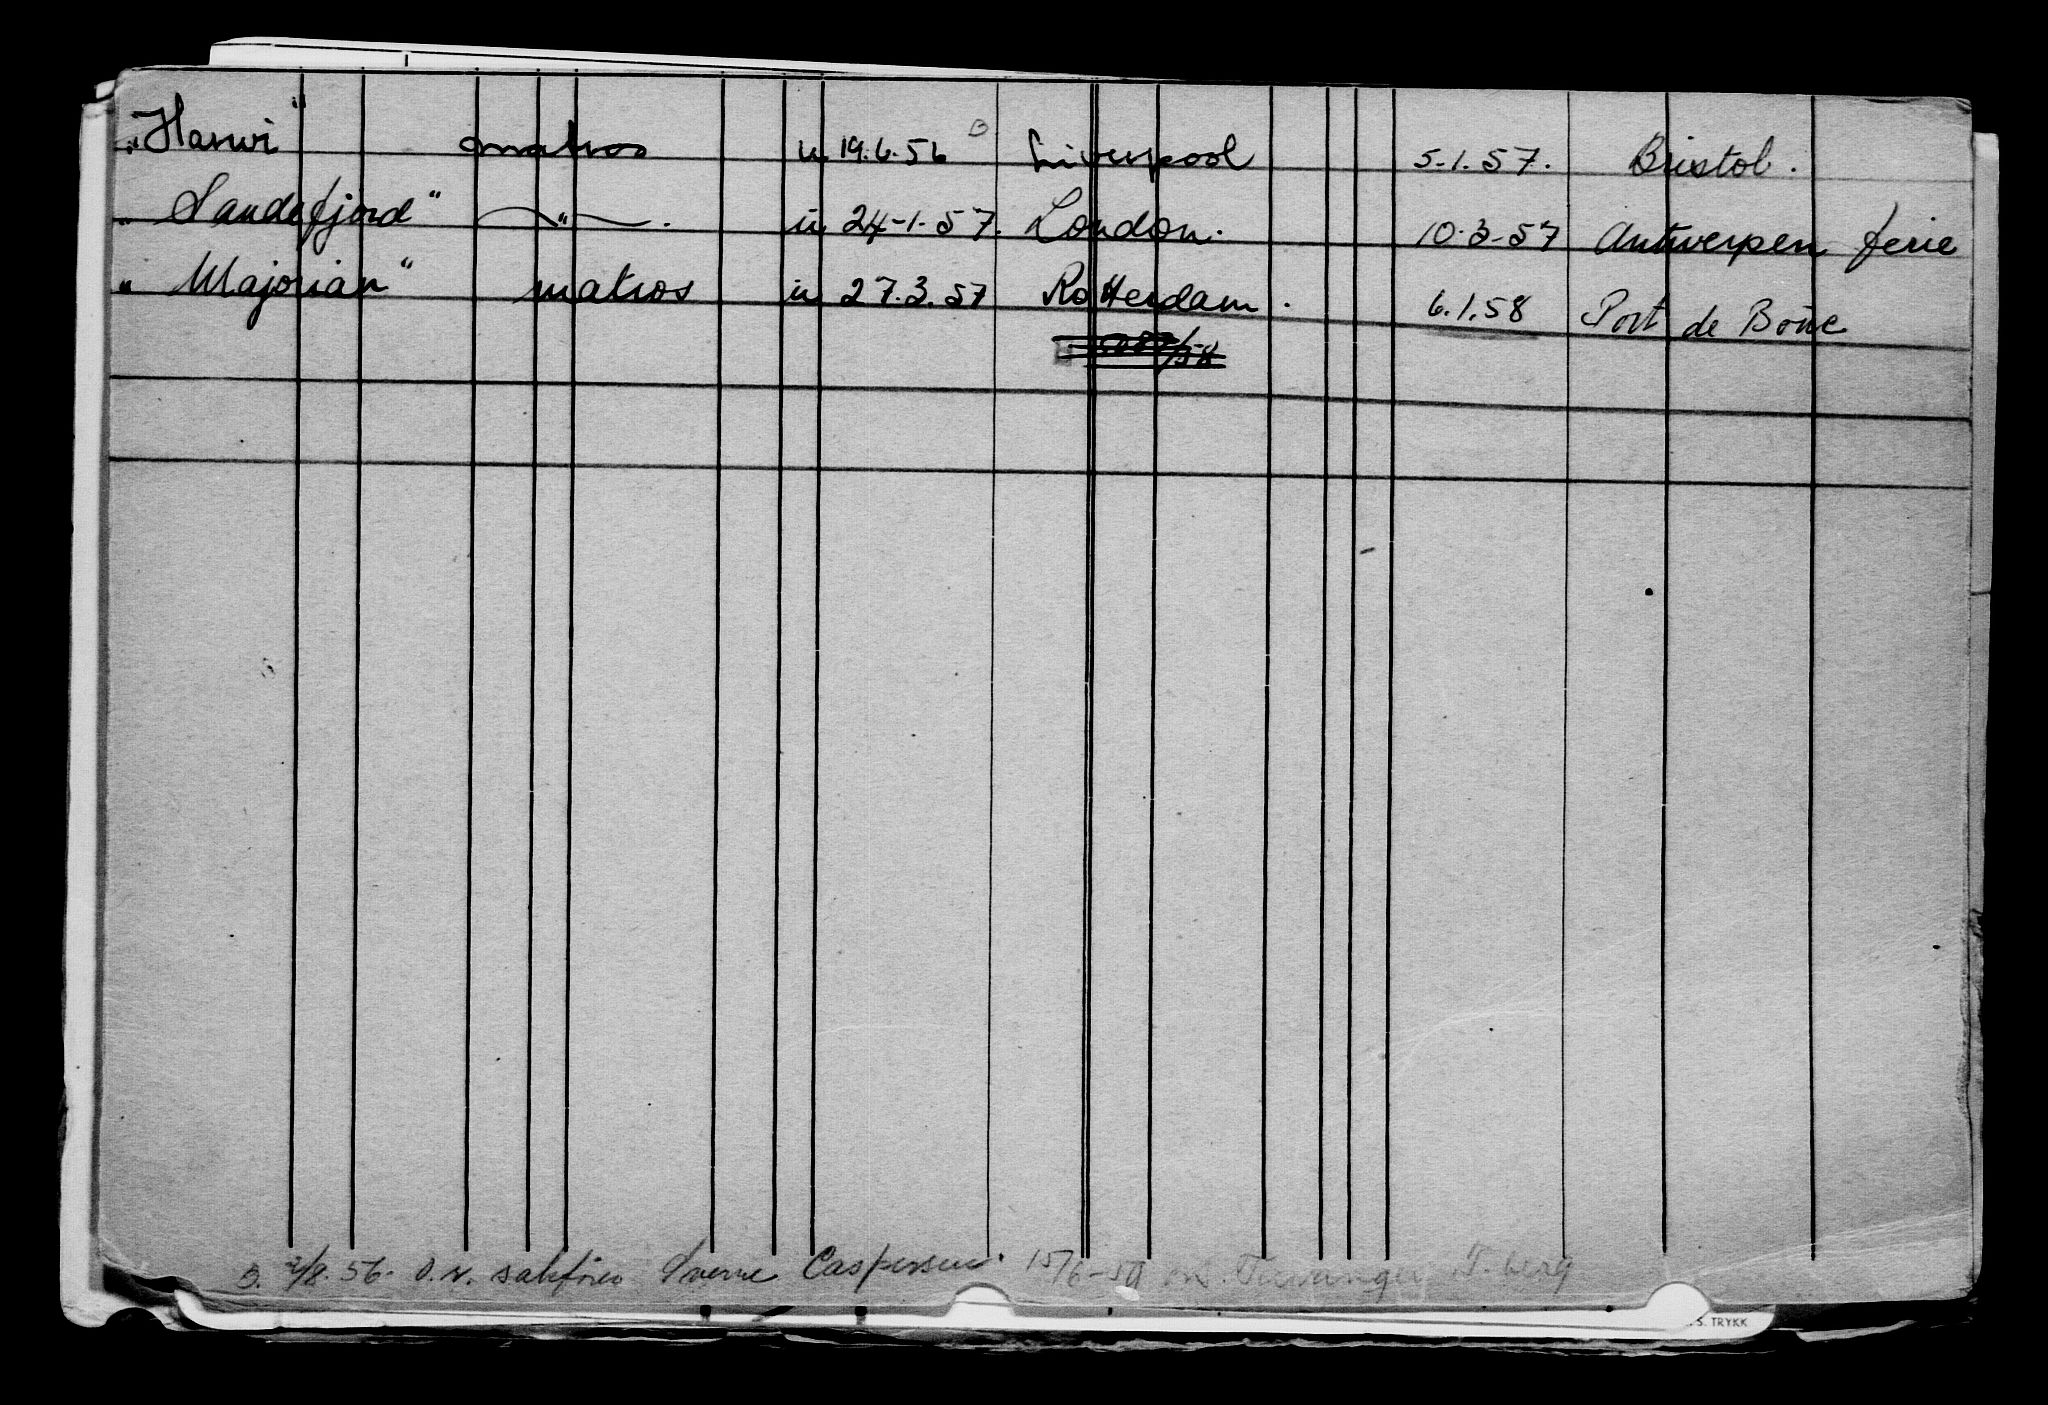 "Harwi" matros u 19.6.56 B. Liverpool 5.1.57. Bristol.
" Sandefjord" — " —. u 24-1-57. London. 10-3-57 Antwerpen ferie
" Majorian" matros u 27.3.57 Rotterdam. 6.1.58 Port de Bouc
B. 2/8.56. O.r. sakfører Sverre Caspersen. 15/6-59 T.berg
S. TRYKK